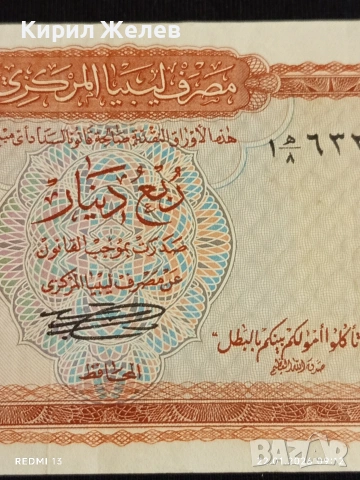 Кирил Желев
مصرف ليبيا المركزي
هذه الأوراق النقدية صالحة قانونا لسداد أي مب
١ هـ/٨ ٦٣٣
ربع دينار
صدرت بموجب القانون
عن مصرف ليبيا المركزي
المحافظ
تأكلوا أموالكم بينكم بالبطل"
صدق الله العظيم
REDMI 13
bazar
БГ